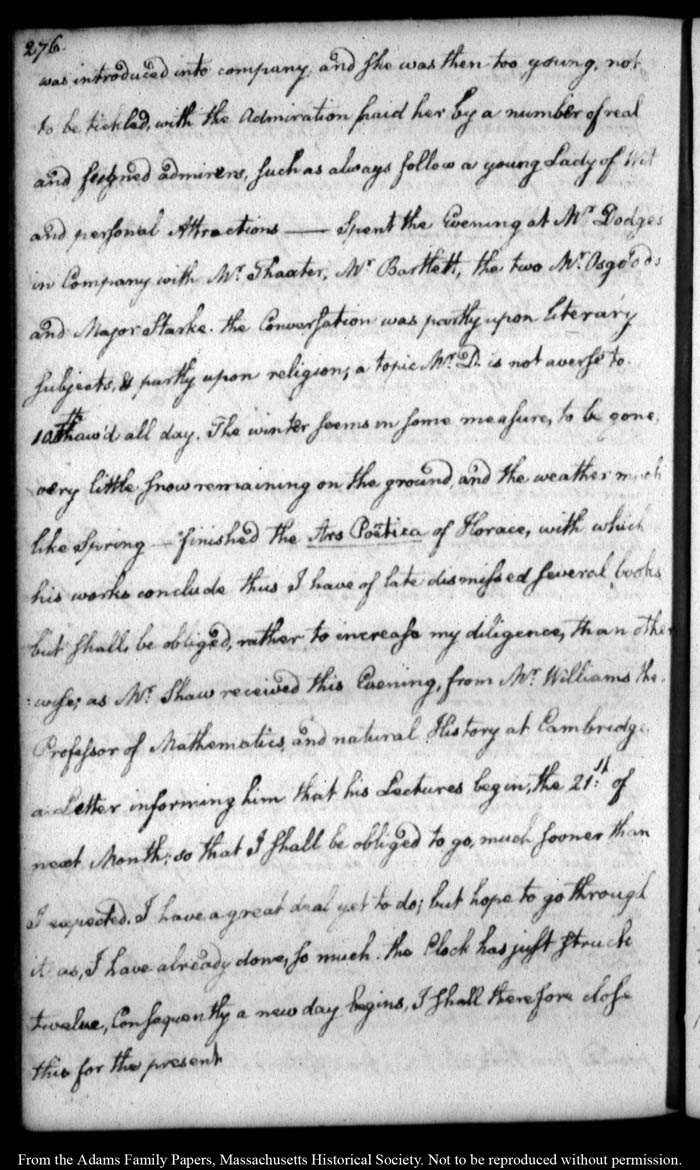 276.
was introduced into company, and she was then too young, not
to be tickled, with the Admiration paid her by a number of real
and feigned admirers, such as always follow a young Lady of Wit
and personal Attractions — Spent the Evening at Mr. Dodges
in Company with Mr. Thaxter, Mr. Bartlett, the two Mr. Osgoods
and Major Starke. the Conversation was partly upon literary
subjects, & partly upon religion; a topic Mr. D. is not averse to.
10th thaw'd all day. The winter seems in some measure, to be gone,
very little snow remaining on the ground, and the weather much
like Spring — finished the Ars Poetica of Horace, with which
his works conclude thus I have of late dismissed several books
but shall, be obliged, rather to increase my diligence, than other
:wise; as Mr. Shaw received this Evening, from Mr. Williams the.
Professor of Mathematics, and natural History at Cambridge,
a Letter informing him that his Lectures begin, the 21st. of
next Month; so that I shall be obliged to go, much sooner than
I expected. I have a great deal yet to do; but hope to go through
it as, I have already done, so much. the Clock has just struck
twelve, Consequently a new day begins, I shall therefore close
this for the present
From the Adams Family Papers, Massachusetts Historical Society. Not to be reproduced without permission.